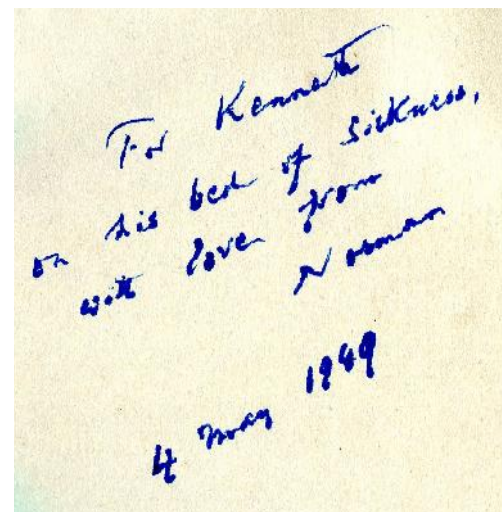 For Kenneth
on his bed of sickness,
with love from
Norman
4 May 1949